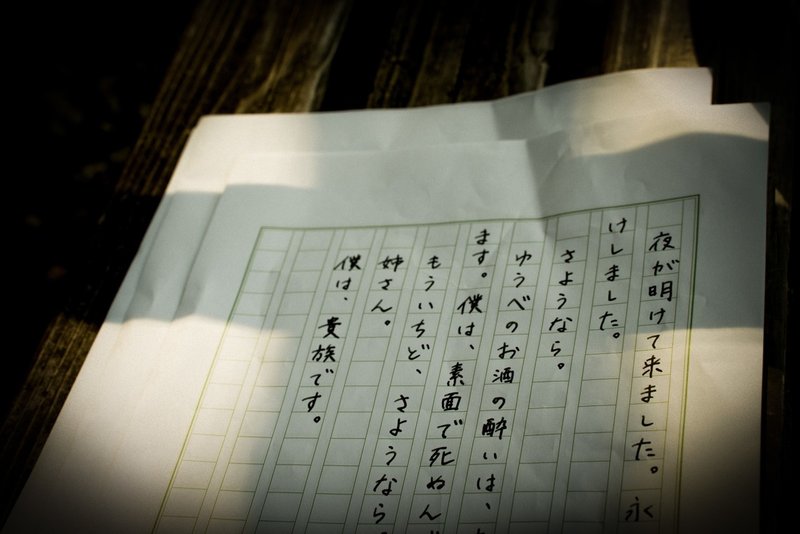 夜が明けて来ました。永
けしました。
さようなら。
ゆうべのお酒の酔いは、
ます。僕は、素面で死ぬん
もういちど、さようなら。
姉さん。
僕は、貴族です。